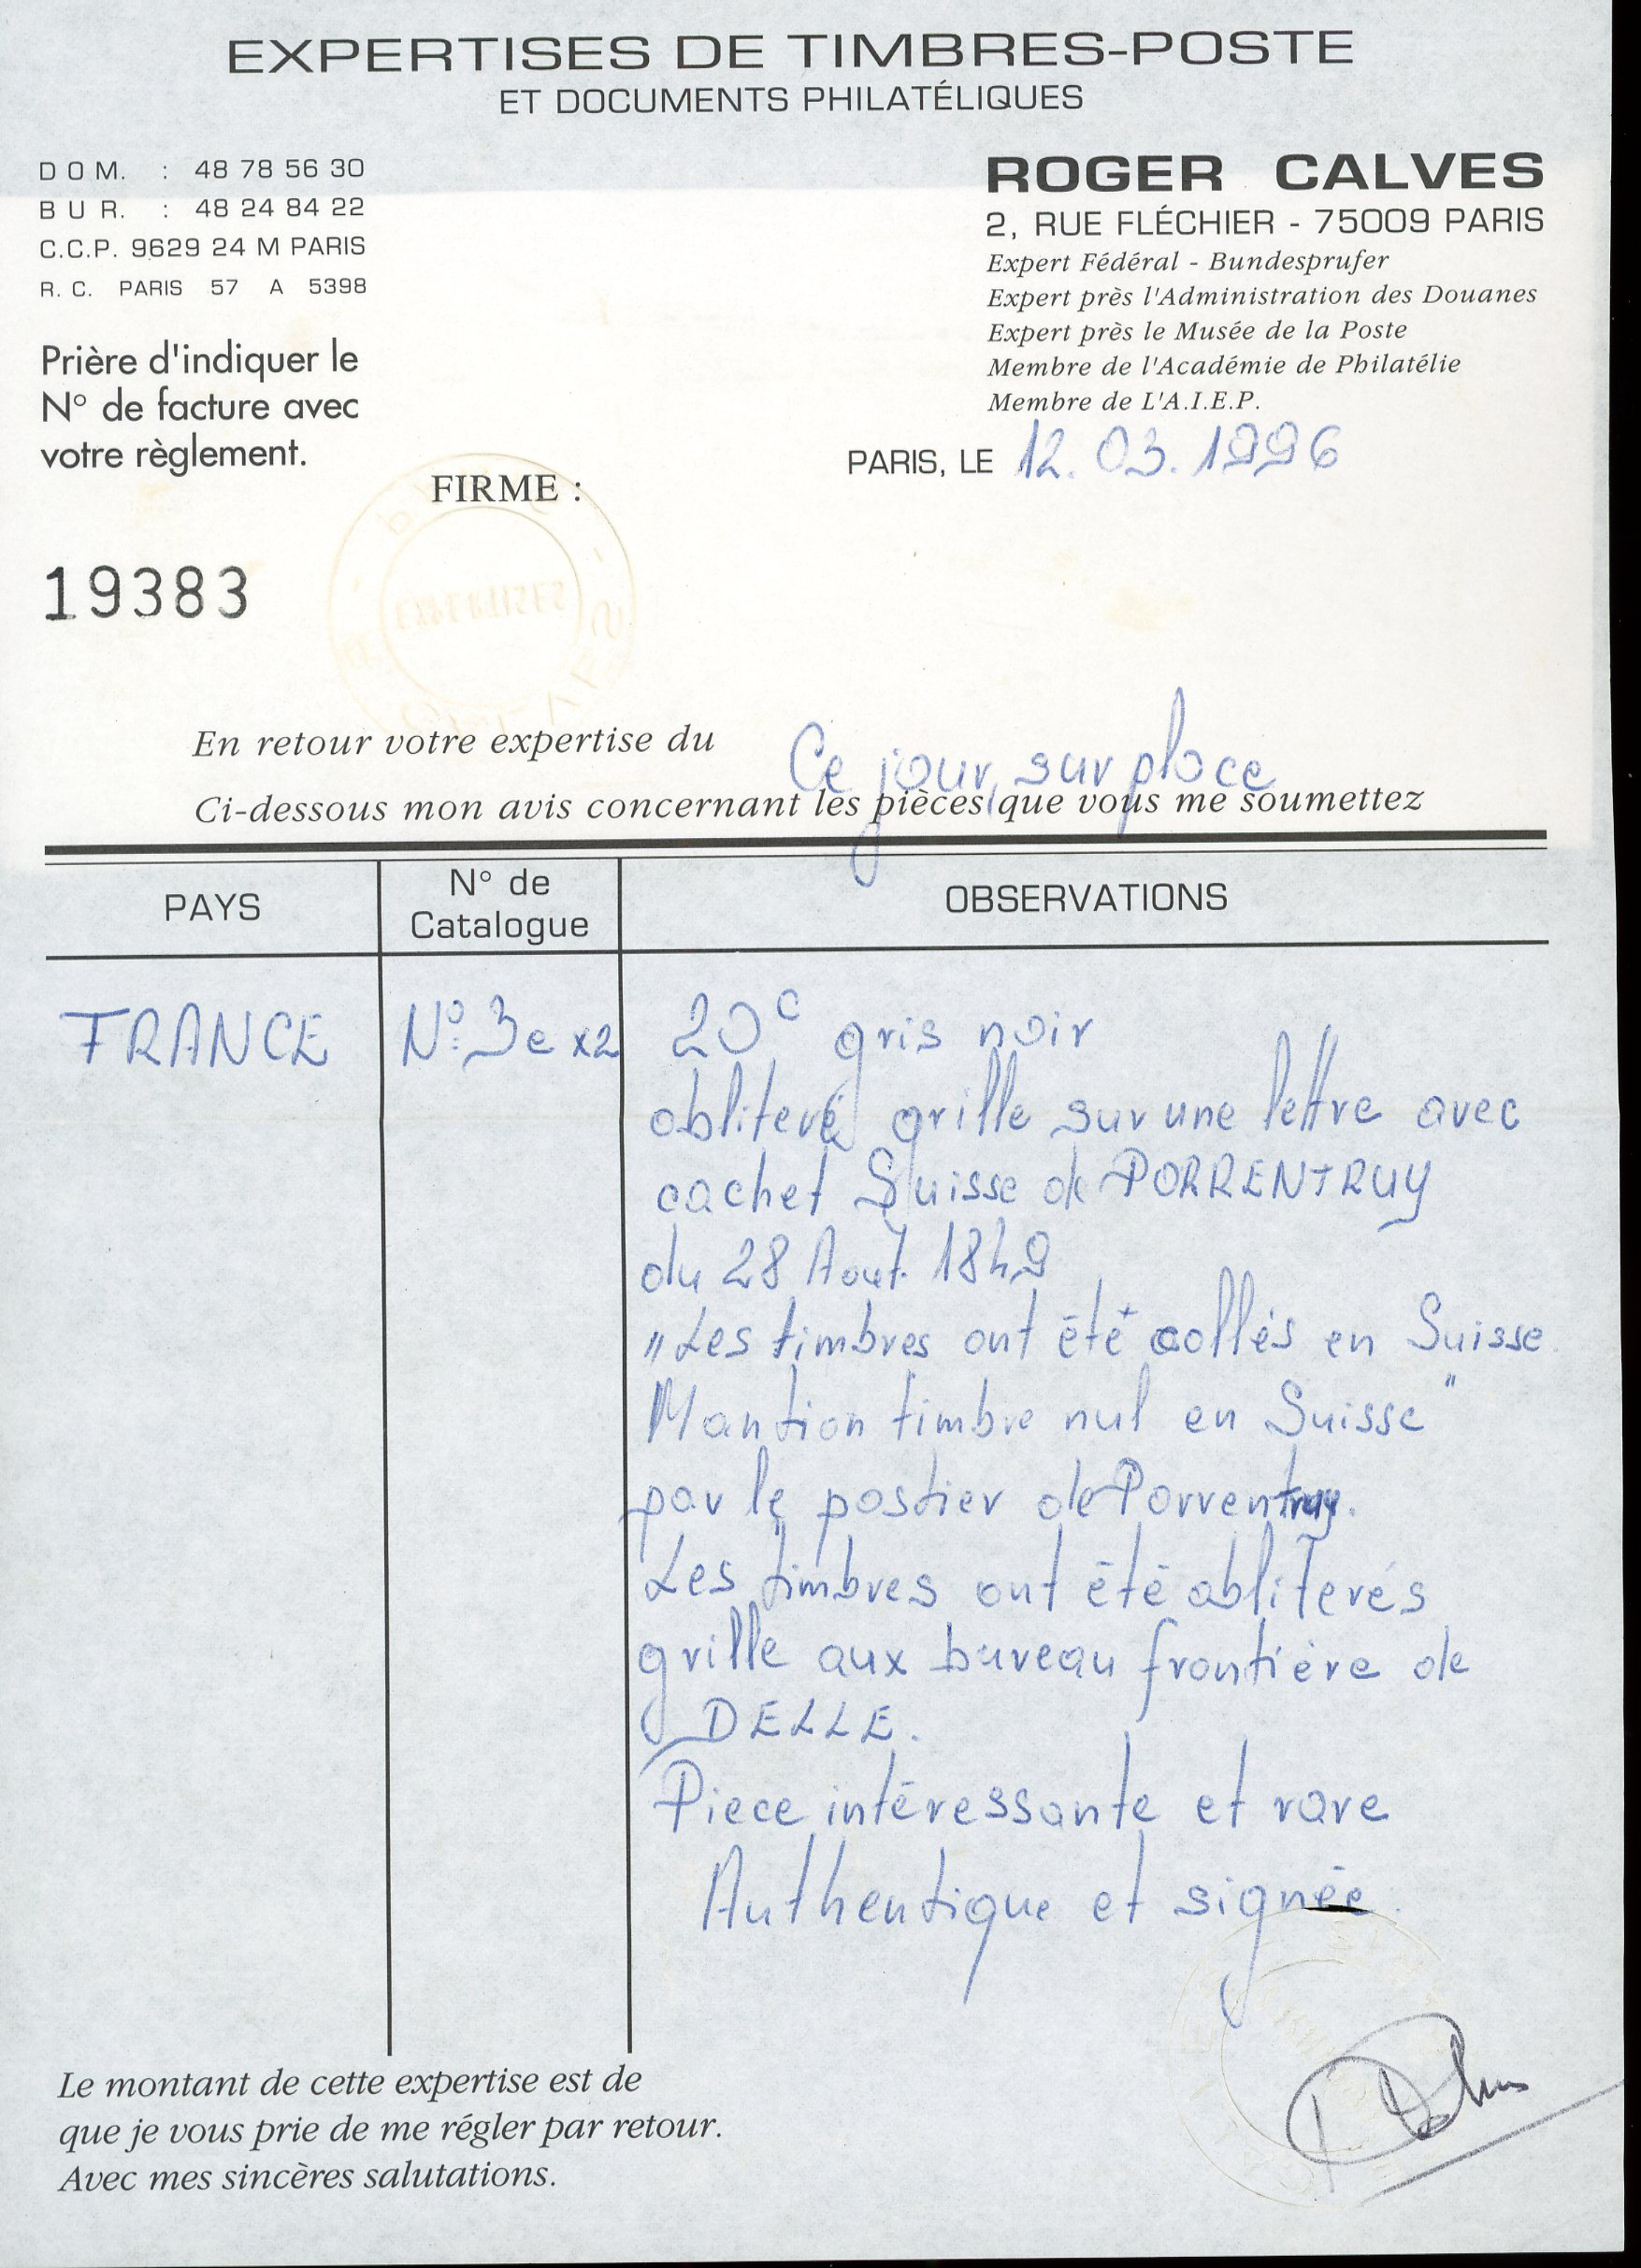 EXPERTISES DE TIMBRES-POSTE
ET DOCUMENTS PHILATÉLIQUES
DOM. : 48 78 56 30
BUR. : 48 24 84 22
C.C.P. 9629 24 M PARIS
R. C. PARIS 57 A 5398
ROGER CALVES
2, RUE FLÉCHIER - 75009 PARIS
Expert Fédéral - Bundesprufer
Expert près l'Administration des Douanes
Expert près le Musée de la Poste
Membre de l'Académie de Philatélie
Membre de L'A.I.E.P.
Prière d'indiquer le
N° de facture avec
votre règlement.
PARIS, LE 12.03.1996
FIRME :
EXPERTISES
19383
En retour votre expertise du Ce jour, sur place
Ci-dessous mon avis concernant les pièces que vous me soumettez
PAYS
N° de
Catalogue
OBSERVATIONS
FRANCE
N° 3e x2
20c gris noir
obliteré grille sur une lettre avec
cachet Suisse de PORRENTRUY
du 28 Aout. 1849
"Les timbres ont été collés en Suisse
Mantion timbre nul en Suisse"
par le postier de Porrentruy.
Les timbres ont été obliterés
grille aux bureau frontière de
DELLE.
Piece intéressante et rare
Authentique et signée.
Le montant de cette expertise est de
que je vous prie de me régler par retour.
Avec mes sincères salutations.